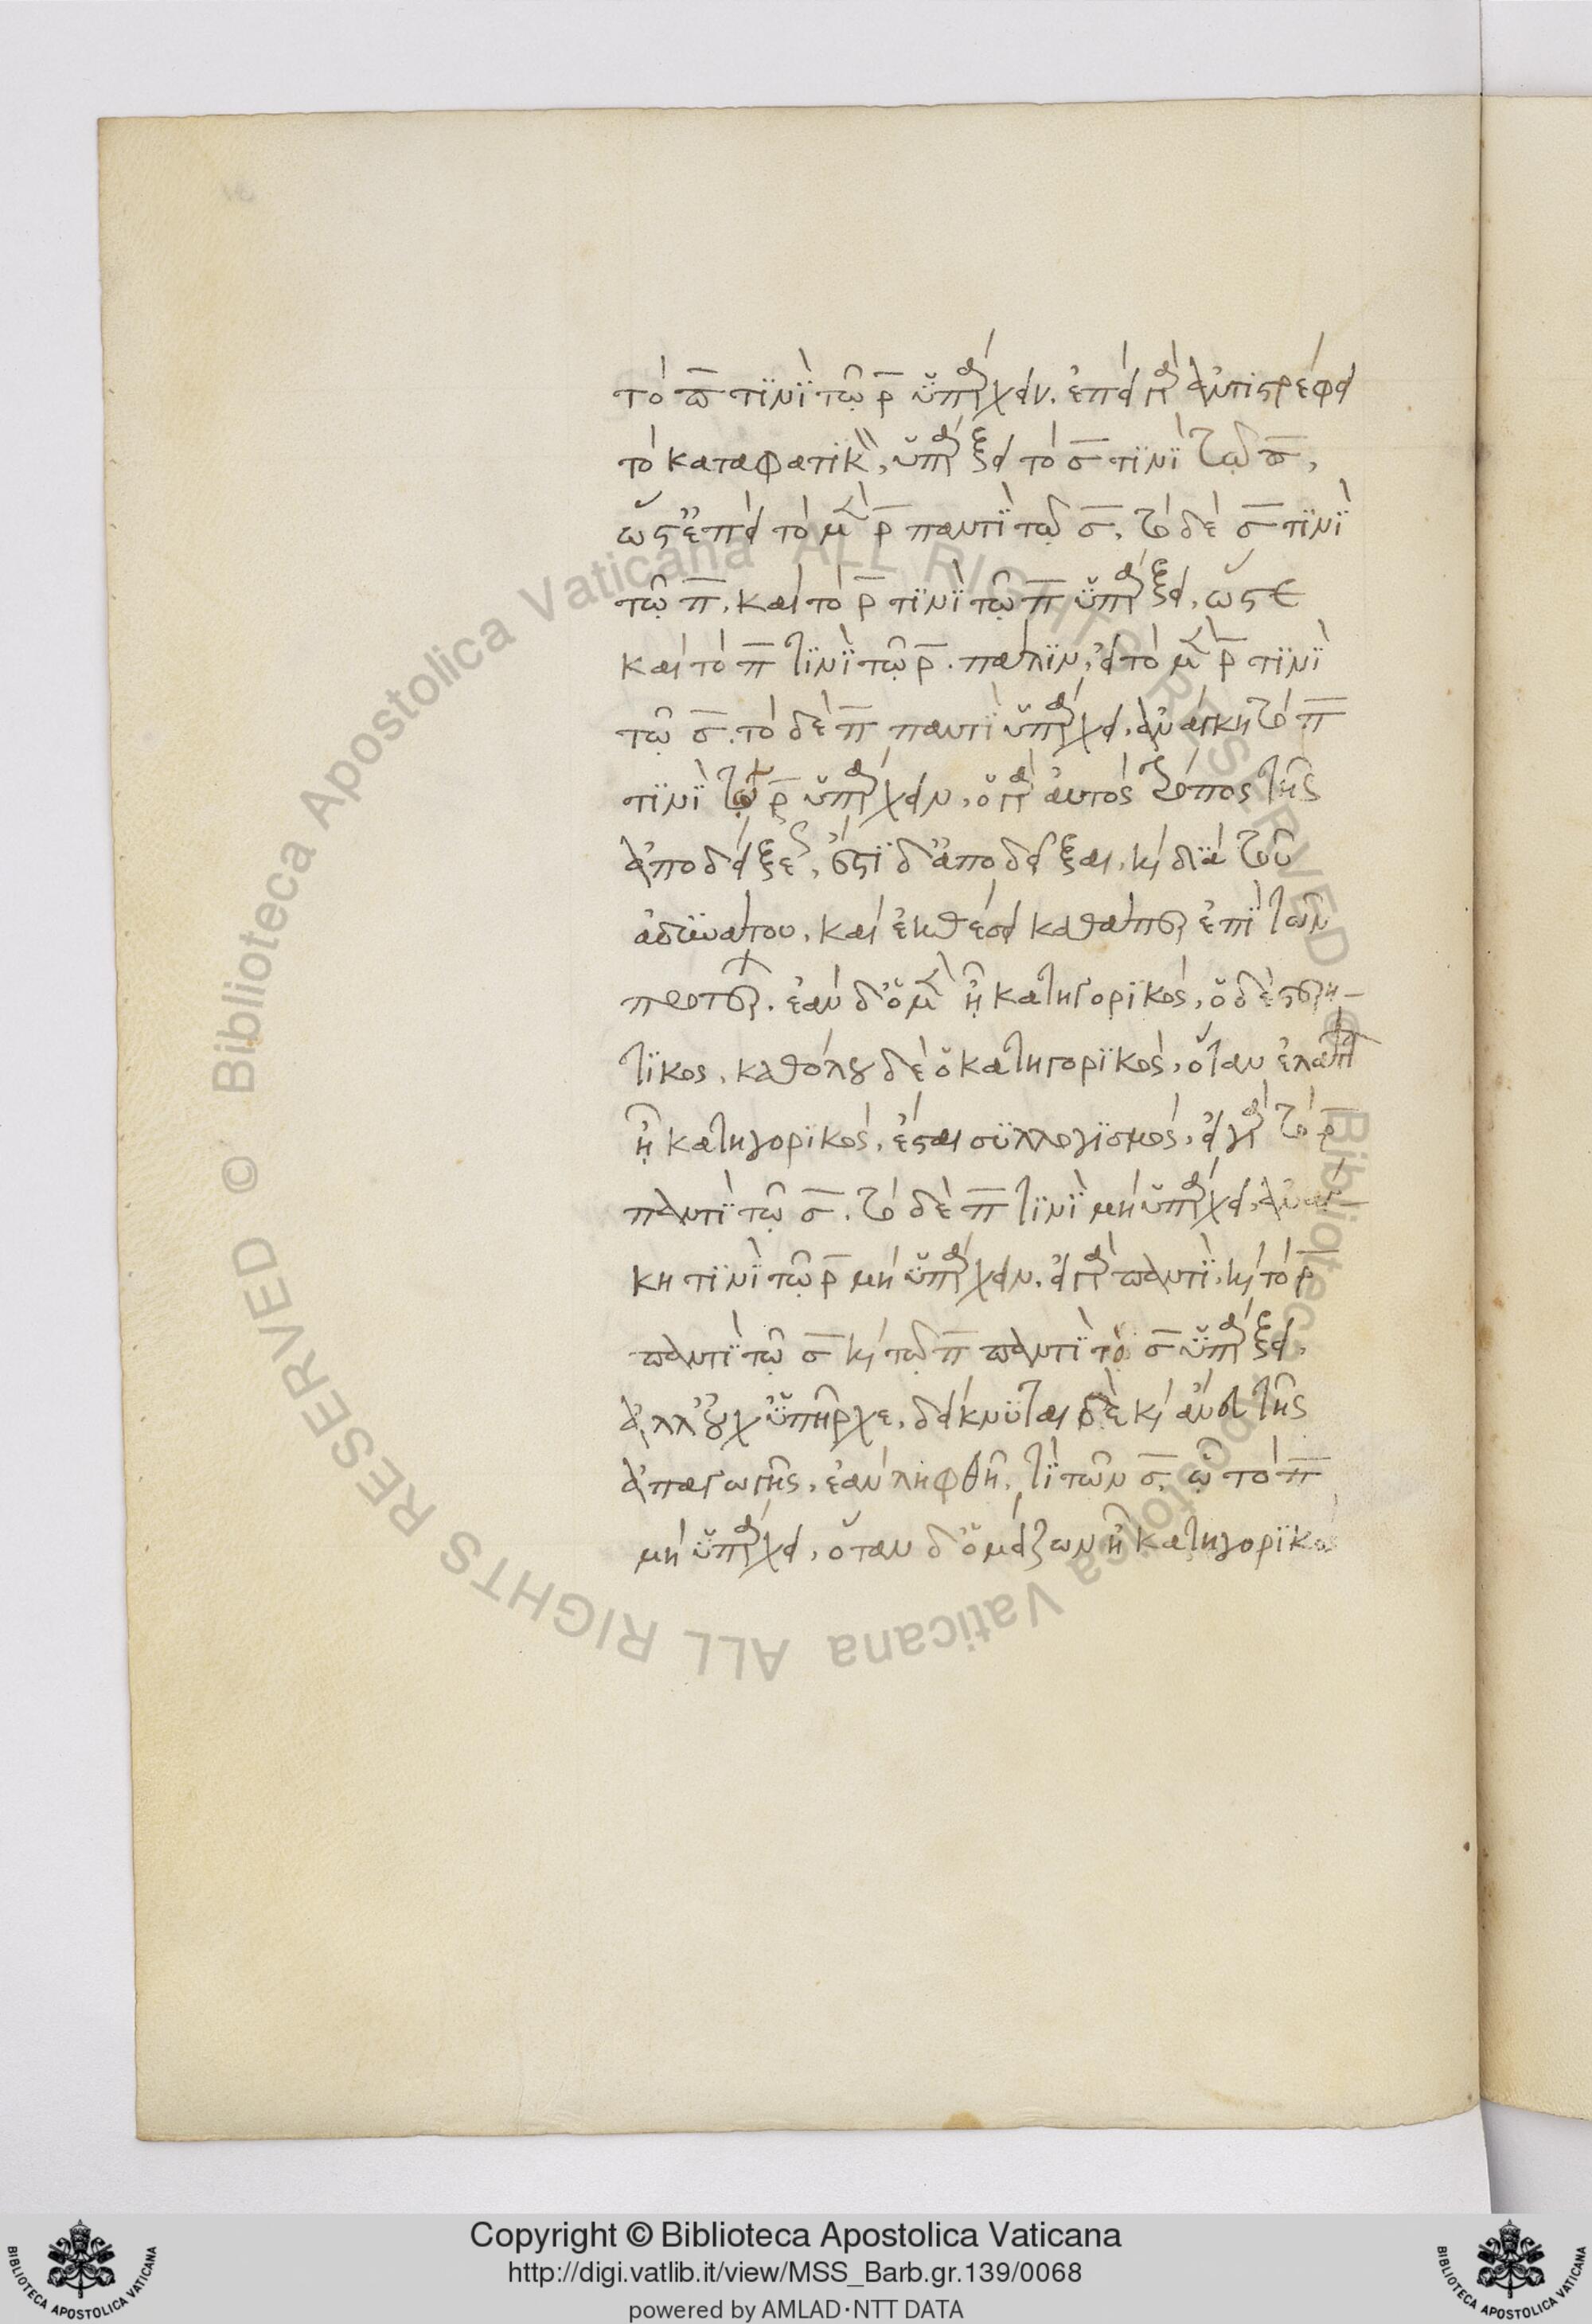 τὸ π̅ τινὶ τῷ ρ̅ ὑπάρχειν. ἐπεὶ γὰρ ἀντιστρέφει
τὸ καταφατικὸν, ὑπάρξει τὸ σ̅ τινὶ τῷ π̅,
ὥστ' ἐπεὶ τὸ μὲν ρ̅ παντὶ τῷ σ̅, τὸ δὲ σ̅ τινὶ
τῷ π̅, καὶ τὸ ρ̅ τινὶ τῷ π̅ ὑπάρξει, ὥστε
καὶ τὸ π̅ τινὶ τῷ ρ̅. πάλιν, εἰ τὸ μὲν ρ̅ τινὶ
τῷ σ̅. τὸ δὲ π̅ παντὶ ὑπάρχει, ἀνάγκη τὸ π̅
τινὶ τῷ ρ̅ ὑπάρχειν, ὁ γὰρ αὐτὸς τρόπος τῆς
ἀποδείξεως, ἔστι δ' ἀποδεῖξαι, καὶ διὰ τοῦ
ἀδυνάτου, καὶ ἐκθέσει καθάπερ ἐπὶ τῶν
πρότερον. ἐὰν δ' ὁ μὲν ᾖ κατηγορικὸς, ὁ δὲ στερη-
τικος, καθόλου δὲ ὁ κατηγορικὸς, ὅταν ἐλάττων
ᾖ κατηγορικὸς, ἔσται συλλογισμὸς, εἰ γὰρ τὸ ρ̅
παντὶ τῷ σ̅. τὸ δὲ π̅ τινὶ μὴ ὑπάρχει, ἀνάγ-
κη τινὶ τῷ ρ̅ μὴ ὑπάρχειν. εἰ γὰρ παντὶ, καὶ τὸ ρ̅
παντὶ τῷ σ̅ καὶ τῷ π̅ παντὶ τὸ σ̅ ὑπάρξει.
ἀλλ' οὐχ ὑπῆρχε, δείκνυται δὲ καὶ ἄνευ τῆς
ἀπαγωγῆς, ἐὰν ληφθῇ, τὶ τῶν σ̅, ᾧ τὸ π̅
μὴ ὑπάρχει, ὅταν δ' ὁ μείζων ᾖ κατηγορικὸς
Copyright © Biblioteca Apostolica Vaticana
http://digi.vatlib.it/view/MSS_Barb.gr.139/0068
powered by AMLAD·NTT DATA
BIBLIOTECA APOSTOLICA VATICANA
BIBLIOTECA APOSTOLICA VATICANA
© Biblioteca Apostolica Vaticana ALL RIGHTS RESERVED © Biblioteca Apostolica Vaticana ALL RIGHTS RESERVED